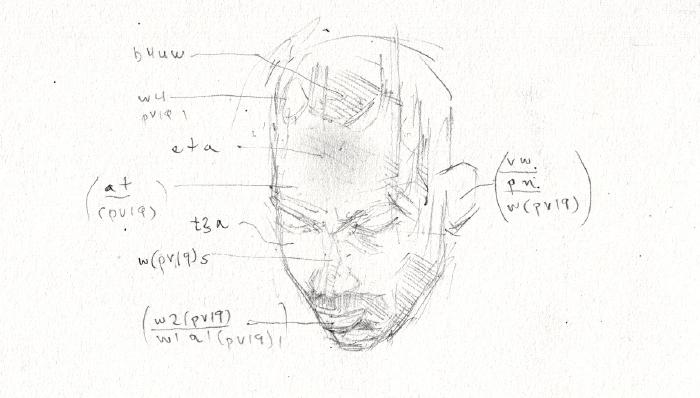 b4uw
w4
pv191
eta
at
(pv19)
t3a
w(pv19)5
w2(pv19)
w1a1(pv19)1
vw.
pn.
w(pv19)